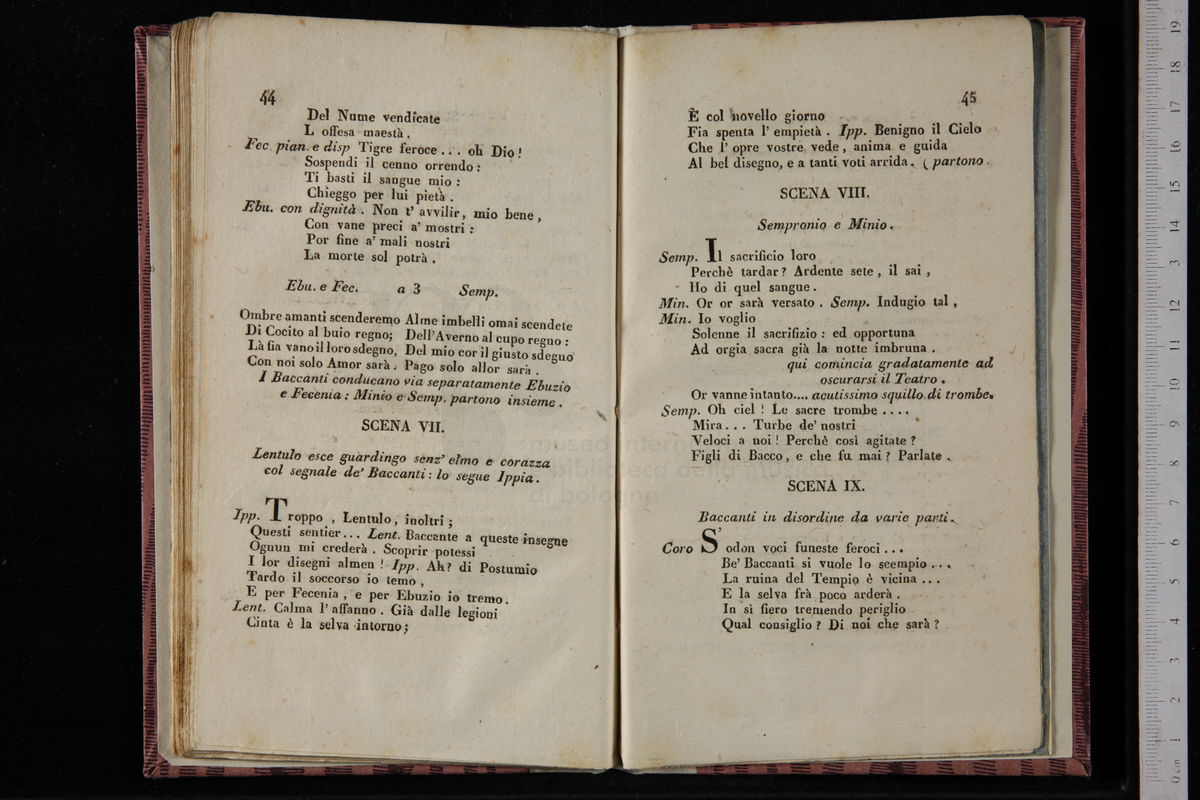 44
Del Nume vendicate
L offesa maestà .
Fec. pian. e disp Tigre feroce . . . oh Dio !
Sospendi il cenno orrendo :
Ti basti il sangue mio :
Chieggo per lui pietà .
Ebu. con dignità . Non t' avvilir, mio bene ,
Con vane preci a' mostri :
Por fine a' mali nostri
La morte sol potrà .
Ebu. e Fec. a 3 Semp.
Ombre amanti scenderemo Alme imbelli omai scendete
Di Cocito al buio regno; Dell'Averno al cupo regno :
Là fia vano il loro sdegno, Del mio cor il giusto sdegno
Con noi solo Amor sarà . Pago solo allor sarà .
I Baccanti conducano via separatamente Ebuzio
e Fecenia : Minio e Semp. partono insieme .
SCENA VII.
Lentulo esce guardingo senz' elmo e corazza
col segnale de' Baccanti : lo segue Ippia .
Ipp. Troppo , Lentulo , inoltri ;
Questi sentier . . . Lent. Baccante a queste insegne
Ognun mi crederà . Scoprir potessi
I lor disegni almen ! Ipp. Ah? di Postumio
Tardo il soccorso io temo ,
E per Fecenia , e per Ebuzio io tremo .
Lent. Calma l' affanno . Già dalle legioni
Cinta è la selva intorno ;
45
È col novello giorno
Fia spenta l' empietà . Ipp. Benigno il Cielo
Che l' opre vostre vede , anima e guida
Al bel disegno, e a tanti voti arrida . ( partono .
SCENA VIII.
Sempronio e Minio .
Semp. Il sacrificio loro
Perchè tardar ? Ardente sete , il sai ,
Ho di quel sangue .
Min. Or or sarà versato . Semp. Indugio tal ,
Min. Io voglio
Solenne il sacrifizio : ed opportuna
Ad orgia sacra già la notte imbruna .
qui comincia gradatamente ad
oscurarsi il Teatro .
Or vanne intanto.... acutissimo squillo di trombe.
Semp. Oh ciel ! Le sacre trombe . . . .
Mira . . . Turbe de' nostri
Veloci a noi ! Perchè così agitate ?
Figli di Bacco , e che fu mai ? Parlate .
SCENA IX.
Baccanti in disordine da varie parti .
Coro S' odon voci funeste feroci . . .
Be' Baccanti si vuole lo scempio . . .
La ruina del Tempio è vicina . . .
E la selva frà poco arderà .
In sì fiero tremendo periglio
Qual consiglio ? Di noi che sarà ?